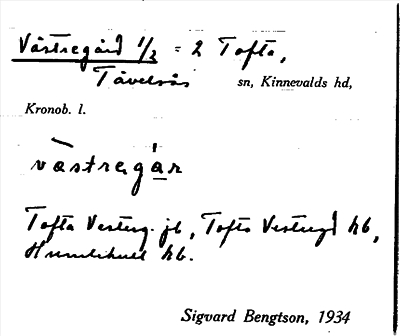 Västregård 1/2 = 2 Tofta,
Tävelsås sn, Kinnevalds hd,
Kronob. l.
västregår
Tofta Vesterg. jb, Tofta Vestregd hb,
hb.
Sigvard Bengtson, 1934